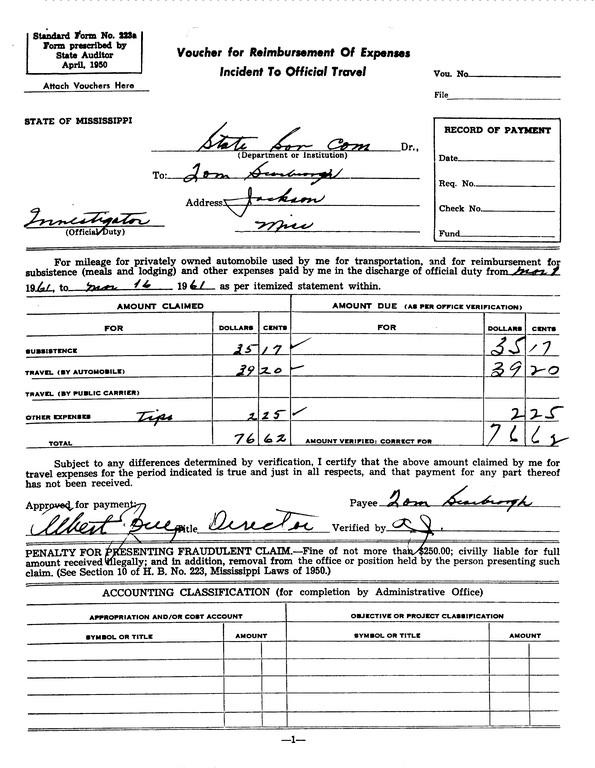 Standard Form No. 223a
Form prescribed by
State Auditor
April, 1950
Attach Vouchers Here
Voucher for Reimbursement Of Expenses
Incident To Official Travel
Vou. No.
File
STATE OF MISSISSIPPI
State Sov Com Dr.,
(Department or Institution)
To: Tom Scarbrough
Address Jackson
Miss
Investigator
(Official Duty)
RECORD OF PAYMENT
Date
Req. No.
Check No.
Fund
For mileage for privately owned automobile used by me for transportation, and for reimbursement for
subsistence (meals and lodging) and other expenses paid by me in the discharge of official duty from Mar 1
1961, to Mar 16 1961 as per itemized statement within.
AMOUNT CLAIMED AMOUNT DUE (AS PER OFFICE VERIFICATION)
FOR DOLLARS CENTS FOR DOLLARS CENTS
SUBSISTENCE 35 17 ✓ 35 17
TRAVEL (BY AUTOMOBILE) 39 20 ✓ 39 20
TRAVEL (BY PUBLIC CARRIER)
OTHER EXPENSES Tips 2 25 ✓ 2 25
TOTAL 76 62 AMOUNT VERIFIED: CORRECT FOR 76 62
Subject to any differences determined by verification, I certify that the above amount claimed by me for
travel expenses for the period indicated is true and just in all respects, and that payment for any part thereof
has not been received.
Approved for payment: Payee Tom Scarbrough
Albert Title Director Verified by
PENALTY FOR PRESENTING FRAUDULENT CLAIM.—Fine of not more than $250.00; civilly liable for full
amount received illegally; and in addition, removal from the office or position held by the person presenting such
claim. (See Section 10 of H. B. No. 223, Mississippi Laws of 1950.)
ACCOUNTING CLASSIFICATION (for completion by Administrative Office)
APPROPRIATION AND/OR COST ACCOUNT OBJECTIVE OR PROJECT CLASSIFICATION
SYMBOL OR TITLE AMOUNT SYMBOL OR TITLE AMOUNT
—1—